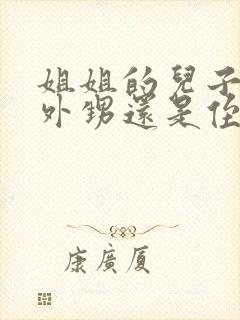 姐姐的兒子
外甥還是侄
康廣厦